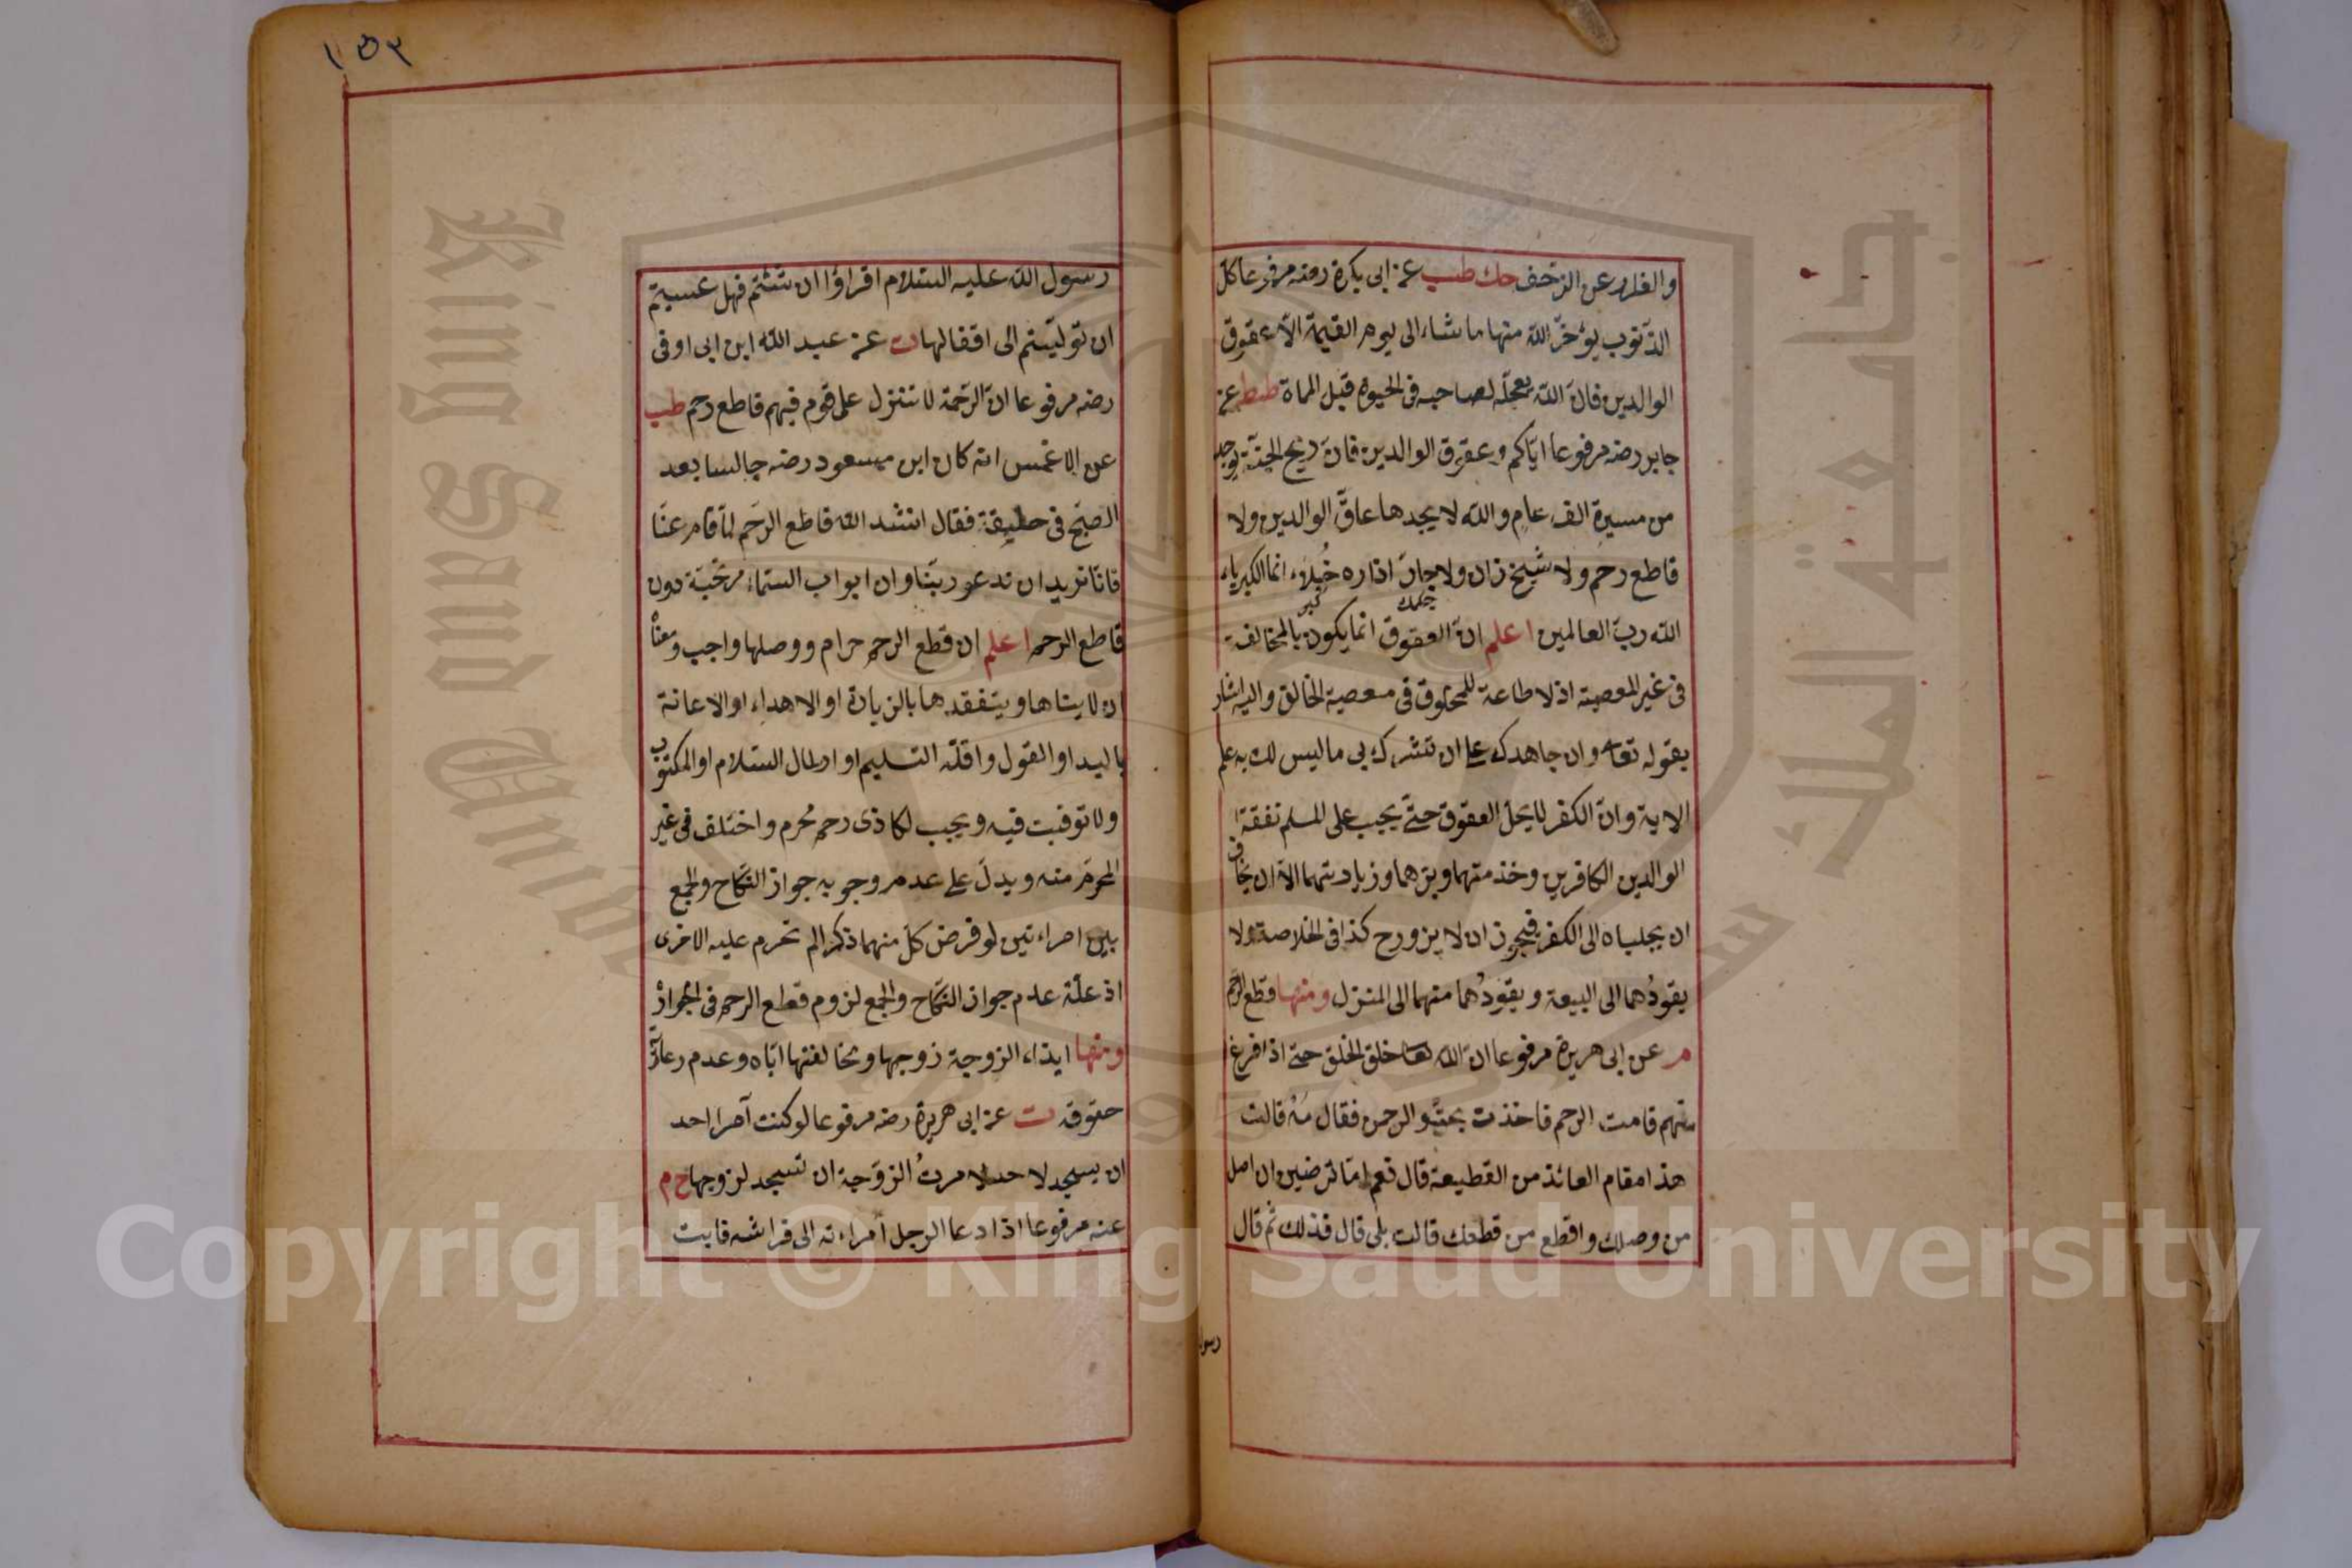 والفرار عن الزخف حك طب عن ابى بكرة رضه مرفوعا كل
الذنوب يؤخر الله منها ما شاء الى يوم القيمة الا عقوق
الوالدين فان الله يعجله لصاحبه فى الحيوة قبل المماة طط عن
جابر رضه مرفوعا اياكم وعقوق الوالدين فان ريح الجنة يوجد
من مسيرة الف عام والله لا يجدها عاق الوالدين ولا
قاطع رحم ولا شيخ زان ولا جار ازاره خيلاء انما الكبرياء
لله رب العالمين اعلم ان العقوق انما يكون بالمخالفة
فى غير المعصية اذ لا طاعة للمخلوق فى معصية الخالق واليه اشار
بقوله تعا وان جاهدك على ان تشرك بى ما ليس لك به علم
الاية وان الكفر لا يحل العقوق حتى يجب على المسلم نفقة
الوالدين الكافرين وخذمتهما وبرهما وزيارتهما الا ان يخاف
ان يجلباه الى الكفر فيجوز ان لا يزورح كذا فى الخلاصة ولا
يقودهما الى البيعة ويقودهما منهما الى المنزل ومنها قطع الرحم
م عن ابى هريرة مرفوعا ان الله تعا خلق الخلق حتى اذا فرغ
منهم قامت الرحم فاخذت بحقو الرحمن فقال مه قالت
هذا مقام العائذ من القطيعة قال نعم اما ترضين ان اصل
من وصلك واقطع من قطعك قالت بلى قال فذلك ثم قال
رسول
١٥٣
رسول الله عليه السلام اقراؤا ان شئتم فهل عسيتم
ان توليتم الى اقفالها ت عن عبد الله ابن ابى اوفى
رضه مرفوعا ان الرحمة لا تنزل على قوم فيهم قاطع رحم طب
عن الاعمس انه كان ابن مسعود رضه جالسا بعد
الصبح فى حليقة فقال انشد الله قاطع الرحم لما قام عنا
فانا نريد ان ندعو ربنا وان ابواب السماء مرتجة دون
قاطع الرحم اعلم ان قطع الرحم حرام ووصلها واجب ومعناه
ان لا ينساها ويتفقدها بالزيارة او الاهداء او الاعانة
باليد او القول واقله التسليم او ارسال السلام او المكتوب
ولا توقيت فيه ويجب لكل ذى رحم محرم واختلف فى غير
المحرم منه ويدل على عدم وجوبه جواز النكاح والجمع
بين امراءتين لو فرض كل منهما ذكرا لم تحرم عليه الاخرى
اذ علة عدم جواز النكاح والجمع لزوم قطع الرحم فى الجواز
ومنها ايذاء الزوجة زوجها ومخالفتها اياه وعدم رعاية
حقوقه ت عن ابى هريرة رضه مرفوعا لو كنت آمرا احد
ان يسجد لاحد لامرت الزوجة ان تسجد لزوجها خ م
عنه مرفوعا اذا دعا الرجل امراءته الى فراشه فابت
Copyright © King Saud University
King Saud University
جامعة الملك سعود